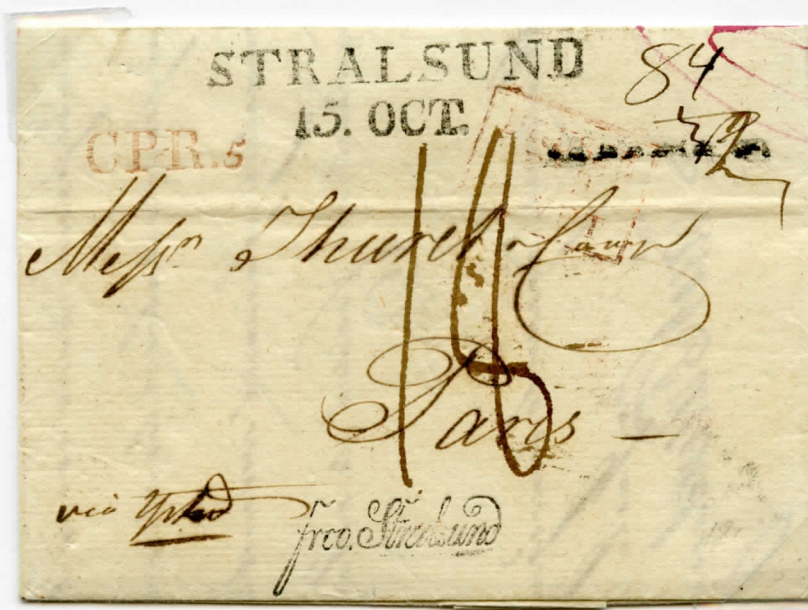 STRALSUND
15. OCT.
84
C.P.R.5
Messrs Thuret &
18
Paris —
via Ystad
frco. Stralsund